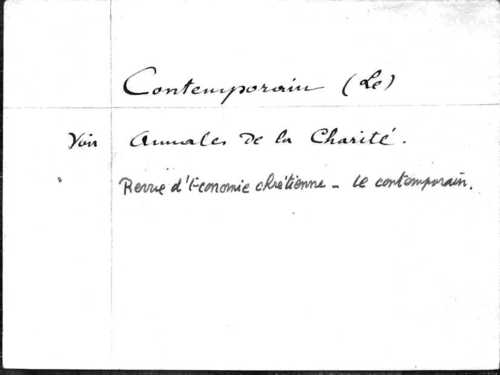 Contemporain (Le)
Voir Annales de la Charité.
" Revue d'Economie chrétienne - le contemporain.